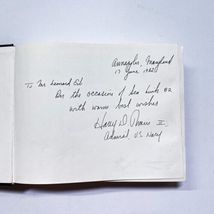 Annapolis, Maryland
17 June 1982
To Mr Leonard
On the occasion of Sea Link #2
with warm best wishes
Harry D. Train II
Admiral US Navy